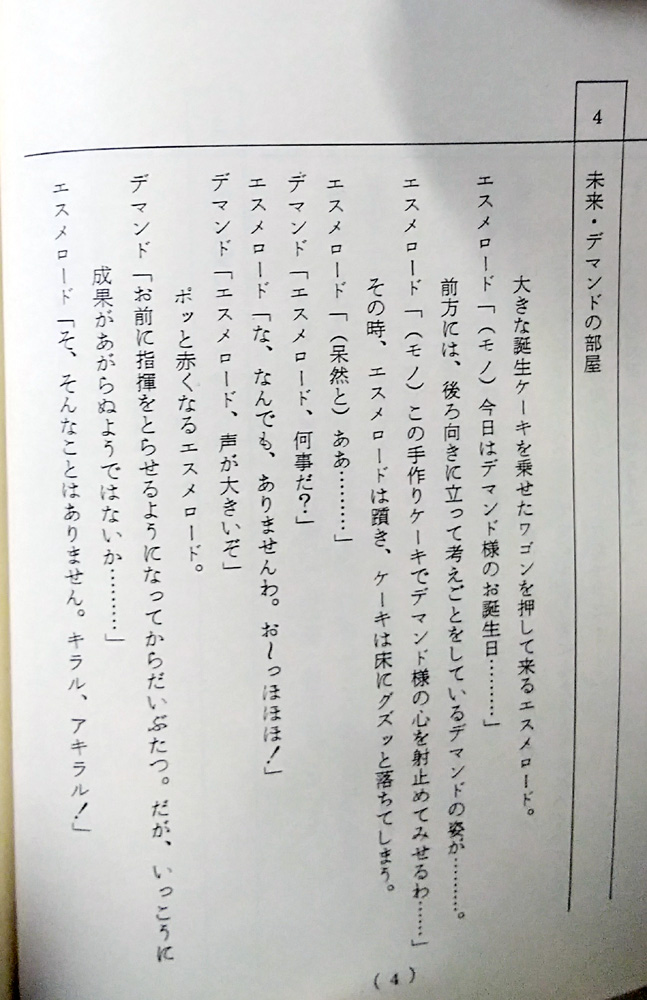 4
未来・デマンドの部屋
大きな誕生ケーキを乗せたワゴンを押して来るエスメロード。
エスメロード「（モノ）今日はデマンド様のお誕生日………」
前方には、後ろ向きに立って考えごとをしているデマンドの姿が………。
エスメロード「（モノ）この手作りケーキでデマンド様の心を射止めてみせるわ……」
その時、エスメロードは躓き、ケーキは床にグズッと落ちてしまう。
エスメロード「（呆然と）ああ………」
デマンド「エスメロード、何事だ？」
エスメロード「な、なんでも、ありませんわ。お～っほほほ！」
デマンド「エスメロード、声が大きいぞ」
ポッと赤くなるエスメロード。
デマンド「お前に指揮をとらせるようになってからだいぶたつ。だが、いっこうに
成果があがらぬようではないか………」
エスメロード「そ、そんなことはありません。キラル、アキラル！」
（４）